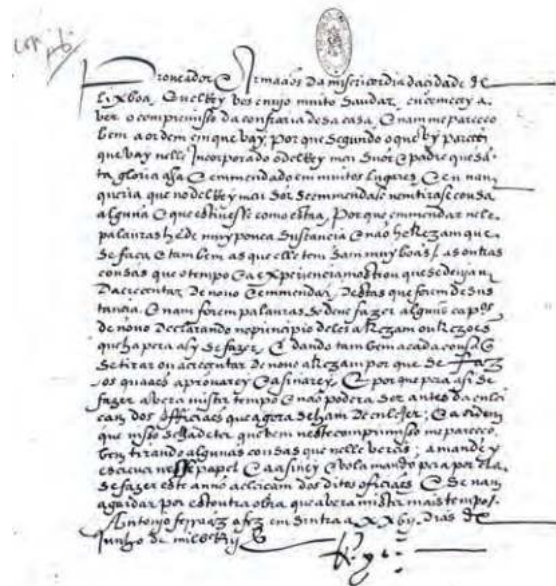 Proueador E Irmaãos da misericordia da cidade de
lixboa, Eu elRey vos enujo muito saudar, eu comecey a
ver o compromisso da confraria desa casa, E nam me pareceo
bem a ordem em que vay, por que segundo o que vy pareceo
que vay nelle Incorporado o delRey meu Sñor E padre que sã
ta gloria aja E emmendado em muitos lugares, E eu nam
queria que no delRey meu Sõr se emmendase nem tirase cousa
alguma E que estiuesse como estaa, Por que emmendar nele
palauras hé de muy pouca sustancia E não he Rezam que
se faça E tambem as que elle tem sam muy boas / as outras
cousas que o tempo E a experiencia mostrou que se deuiam
Dacrecentar de nouo E emmendar, destas que forem de sus
tancia, E nam forem palauras se deue fazer alguũs capos
de nouo Declarando no principio deles a Rezam ou Rezoẽs
que ha pera asy se fazer, E dando tambem a cada cousa q̃
se tirar ou acrecentar de nouo a Rezam por que se faz
os quaaes aprouarey E asinarey, E por que pera asi se
fazer auera mister tempo E não podera ser antes da enlei
cam dos officiaes que agora se ham de enlejer; E a ordem
que nisso se ha de ter que vem neste compromisso me pareceo
bem tirando algumas cousas que nelle vereis; a mandey
escreuer nesse papel E a asiney E vola mando pera por ela
se fazer este anno a eleicam dos ditos oficiaes E se nam
aguardar por estoutra obra que auera mister mais tempo.
Antonio ferraz a fez em Sintra a XXbj dias de
Junho de mil
Rey